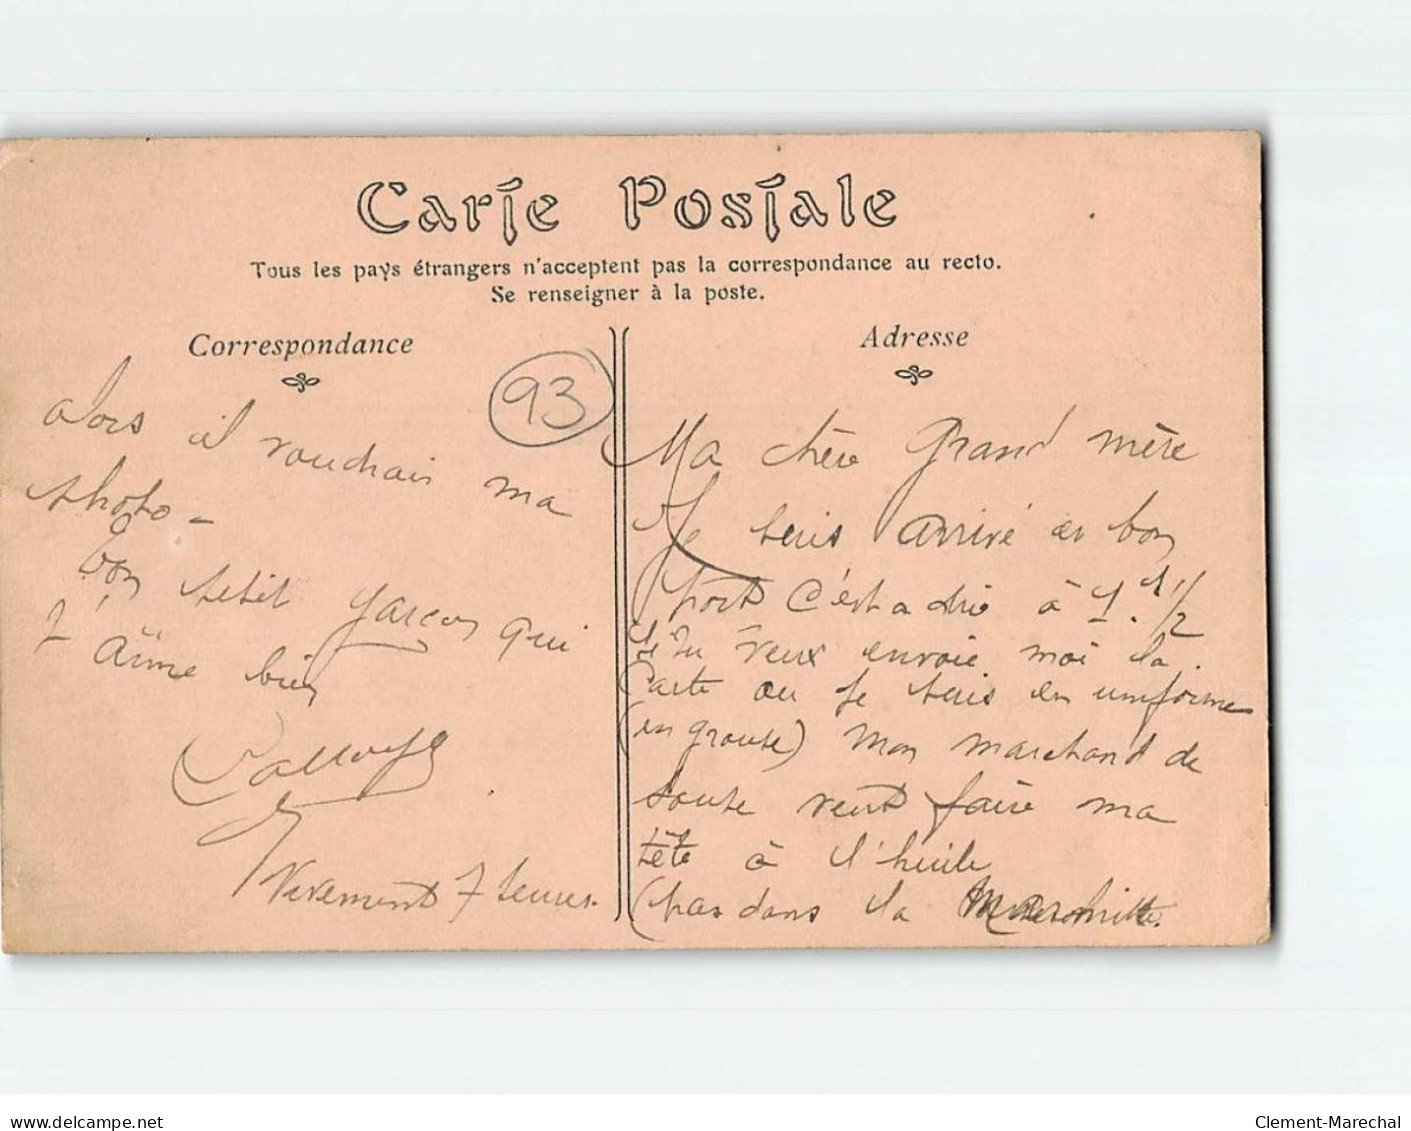 Carte Postale
Tous les pays étrangers n'acceptent pas la correspondance au recto.
Se renseigner à la poste.
Correspondance
Adresse
93
Ma chère Grand mère
Je suis arrivé en bon
port c'est a dire à 1.h 1/2
Si Tu veux envoie moi la
Carte ou je suis en uniforme
(en groupe) Mon marchand de
soupe veut faire ma
tête à l'huile
(pas dans la
alors il voudrais ma
photo -
bon petit garçon qui
t'aime bien
Vivement 7 heures.
delcampe.net
Clement-Marechal